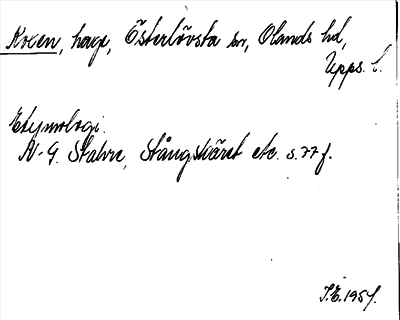 Kocen, hage, Österlövsta sn, Olands hd,
Upps. l.
Etymologi.
N-G. Stahre, Stångskäret etc. s. 77 f.
I.E. 1954.